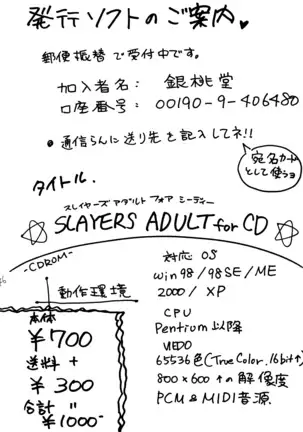 発行ソフトのご案内♥
郵便振替で受付中です。
加入者名: 銀桃堂
口座番号: 00190-9-406480
● 通信らんに送り先を記入してネ!!
宛名カード
として使うョ
タイトル.
スレイヤーズ アダルト フォア シーディー
☆ SLAYERS ADULT for CD ☆
-CDROM-
動作環境
対応 OS
Win 98/98SE/ME
2000/ XP
CPU
Pentium 以降
VIEDO
65536色(True Color. 16bit↑)
800×600 ↑の解像度
PCM & MIDI音源
本体
¥700
送料 +
¥300
合計 〃
¥1000-